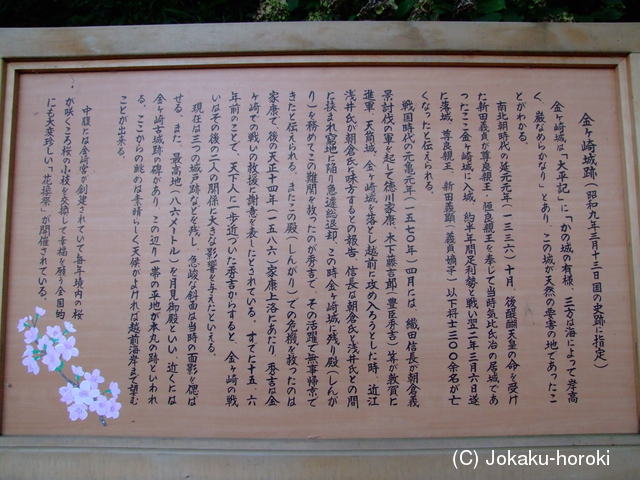 金ヶ崎城跡(昭和九年三月十三日国の史跡に指定)
金ヶ崎城は「太平記」に「かの城の有様、三方は海によって岸高
く、巌なめらかなり」とあり、この城が天然の要害の地であったこ
とがわかる。
南北朝時代の延元元年(一三三六)十月、後醍醐天皇の命を受け
た新田義貞が尊良親王・恒良親王を奉じて当時気比氏治の居城であ
ったここ金ヶ崎城に入城、約半年間足利勢と戦い翌二年三月六日遂
に落城、尊良親王、新田義顕(義貞嫡子)以下将士三〇〇余名が亡
くなったと伝えられる。
戦国時代の元亀元年(一五七〇年)四月には、織田信長が朝倉義
景討伐の軍を起して徳川家康、木下藤吉郎(豊臣秀吉)等が敦賀に
進軍、天筒城、金ヶ崎城を落とし越前に攻め入ろうとした時、近江
浅井氏が朝倉氏に味方するとの報告、信長は朝倉氏と浅井氏との間
に挟まれ窮地に陥り急遽総退却、この時金ヶ崎城に残り殿(しんが
り)を務めてこの難関を救ったのが秀吉で、その活躍で無事帰京で
きたと伝えられる。またこの殿(しんがり)での危機を救ったのは
家康で、後の天正十四年(一五八六)家康上洛にあたり、秀吉は金
ヶ崎での戦いの救援に謝意を表したとされている。すでに十五、六
年前のことで、天下人に一歩近づいた秀吉からすると、金ヶ崎の戦
いはその後の二人の関係に大きな影響を与えたといえる。
現在は三つの城戸跡などを残し、急峻な斜面は当時の面影を偲ば
せる。また、最高地(八六メートル)を月見御殿といい、近くには
金ヶ崎古城跡の碑があり、この辺り一帯の平地が本丸の跡といわれ
る。ここからの眺めは素晴らしく天候がよければ越前海岸まで望む
ことが出来る。
中腹には金崎宮が創建されていて毎年境内の桜
が咲くころ桜の小枝を交換して幸福を願う全国的
にも大変珍しい「花換祭」が開催されている。
(C) Jokaku-horoki